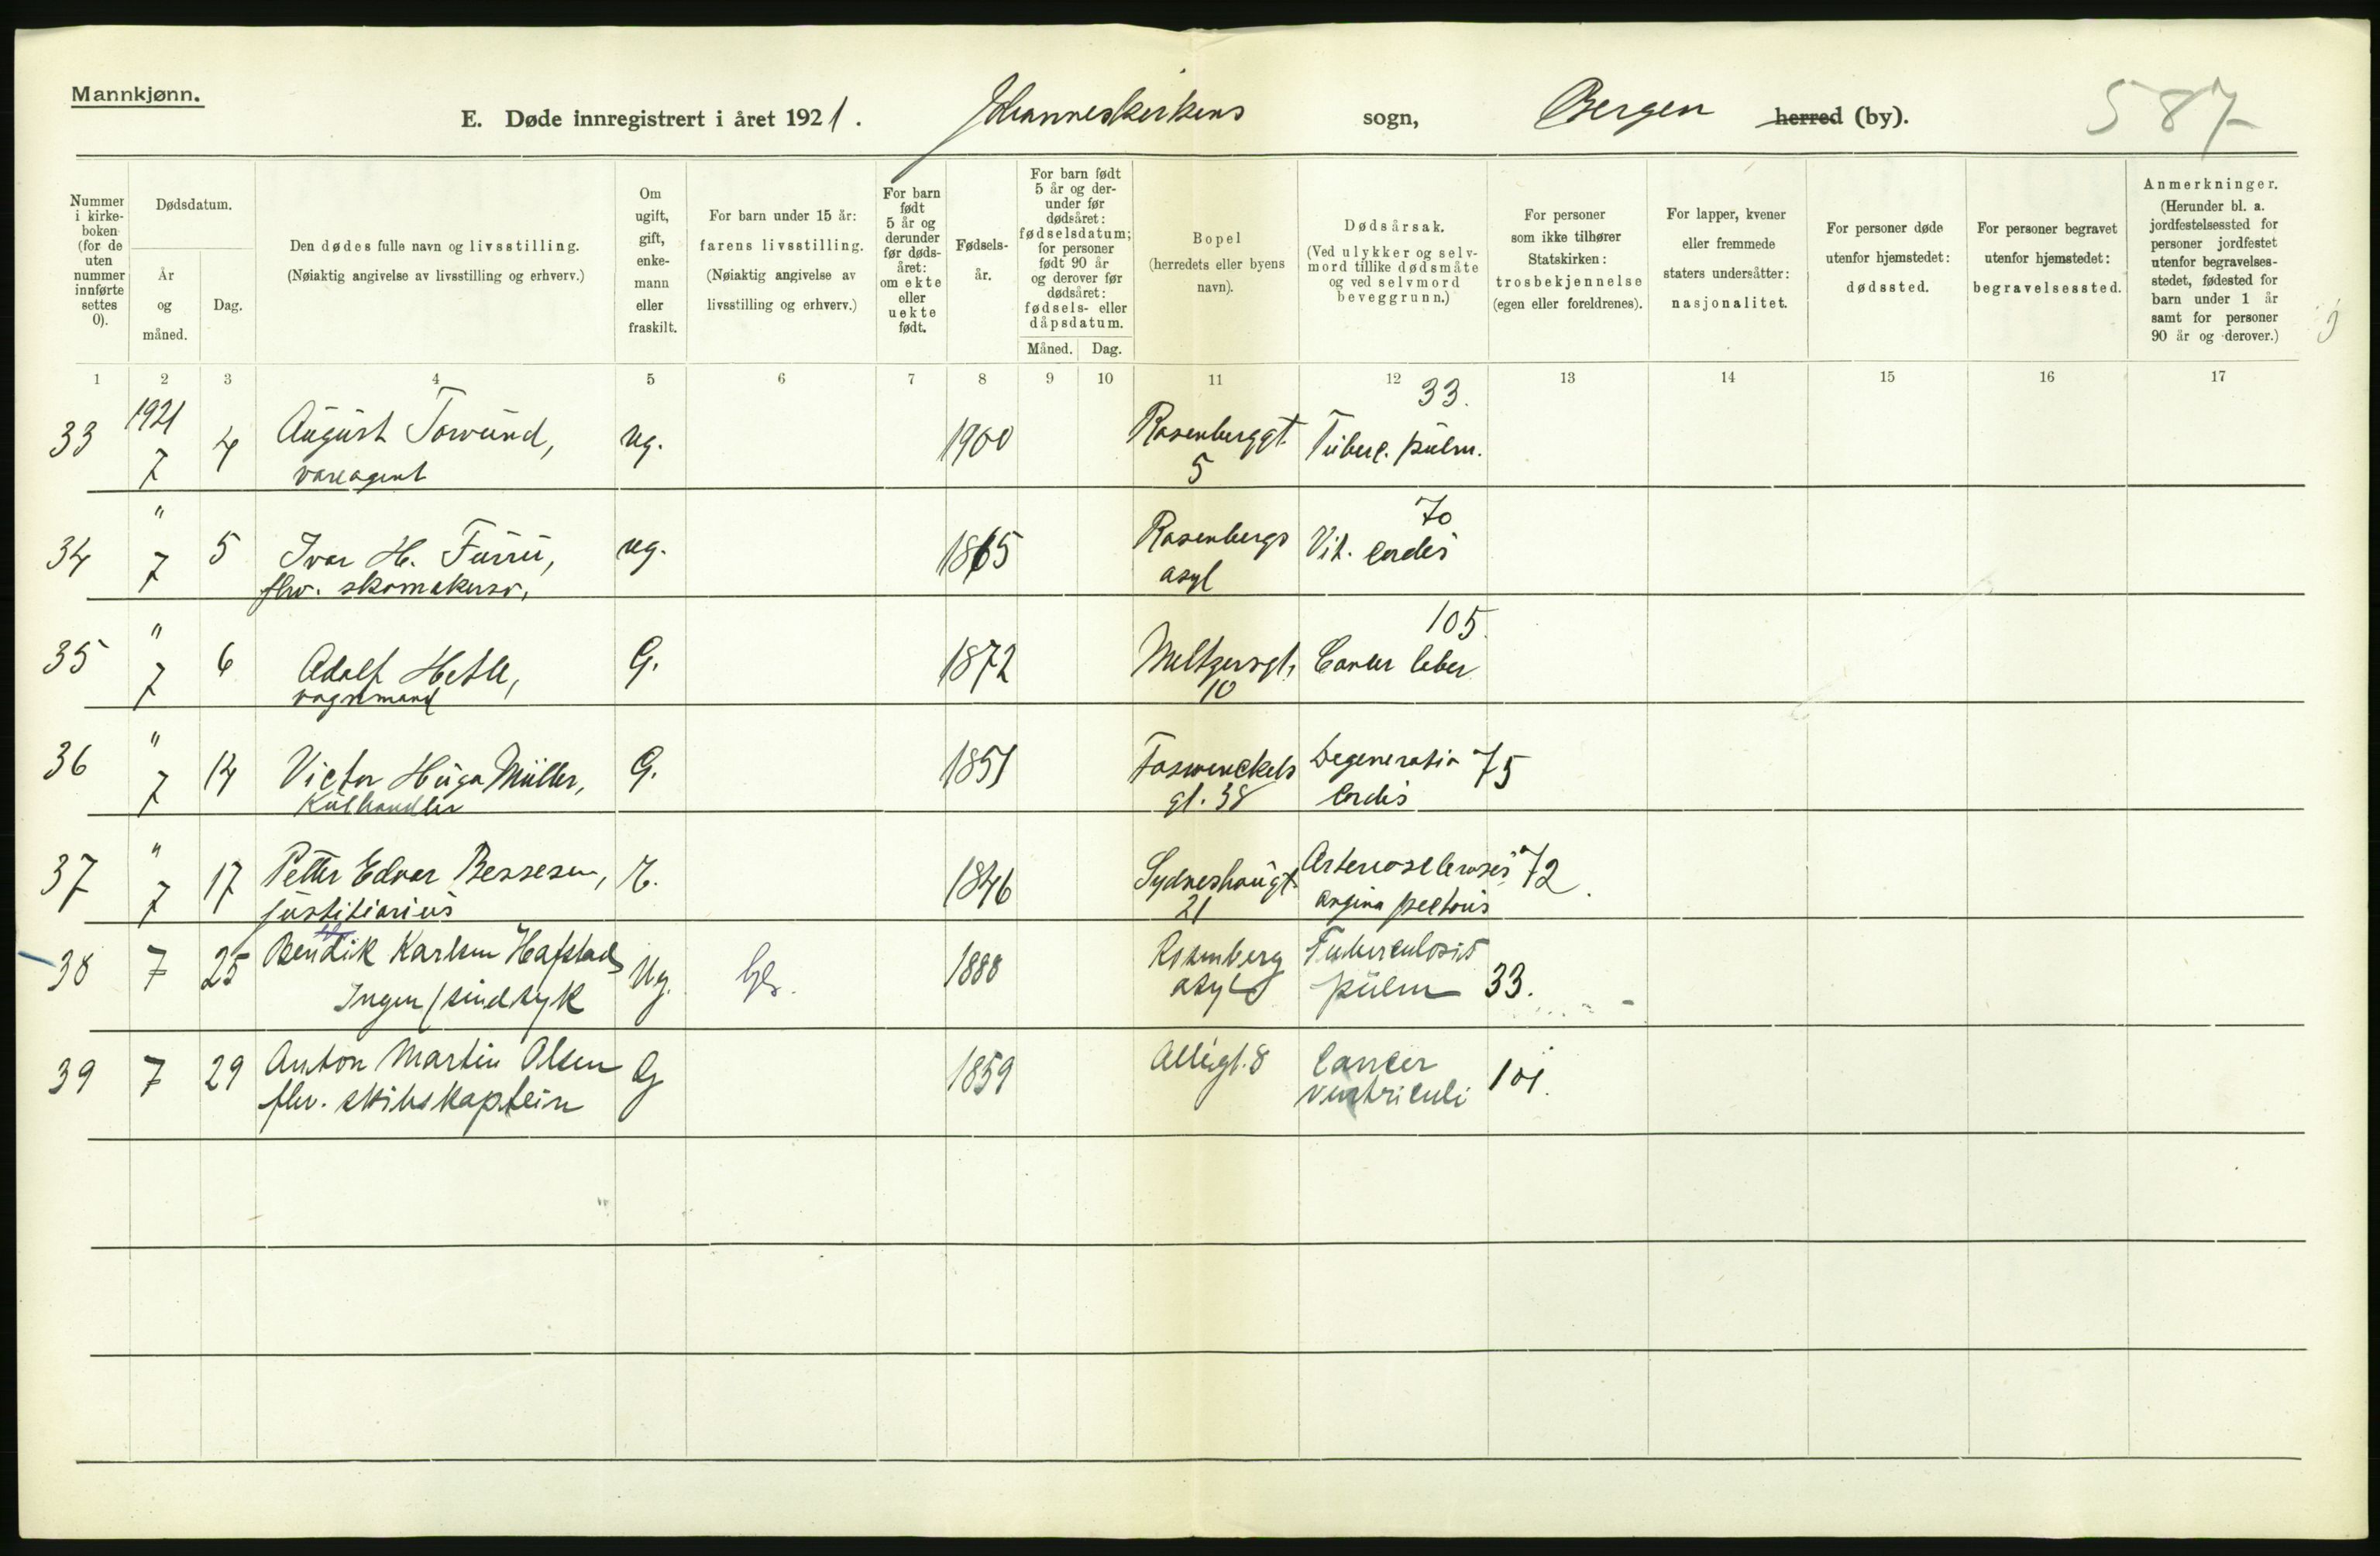 Mannkjønn.
E. Døde innregistrert i året 1921. Johanneskirkens sogn, Bergen herred (by). 587
Nummer i kirke- boken (for de uten nummer innførte settes 0).
Dødsdatum.
År og måned.
Dag.
Den dødes fulle navn og livsstilling.
(Nøiaktig angivelse av livsstilling og erhverv.)
Om ugift, gift, enke- mann eller fraskilt.
For barn under 15 år:
farens livsstilling.
(Nøiaktig angivelse av
livsstilling og erhverv.)
For barn født 5 år og derunder før døds- året: om ekte eller uekte født.
Fødsels- år.
For barn født 5 år og der- under før dødsåret: fødselsdatum; for personer født 90 år og derover før dødsåret: fødsels- eller dåpsdatum.
Måned. Dag.
Bopel
(herredets eller byens navn).
Dødsårsak.
(Ved ulykker og selv- mord tillike dødsmåte og ved selvmord beveggrunn.)
For personer som ikke tilhører Statskirken:
trosbekjennelse
(egen eller foreldrenes).
For lapper, kvener eller fremmede staters undersåtter:
nasjonalitet.
For personer døde utenfor hjemstedet:
dødssted.
For personer begravet utenfor hjemstedet:
begravelsessted.
Anmerkninger.
(Herunder bl. a. jordfestelsessted for personer jordfestet utenfor begravelses- stedet, fødested for barn under 1 år samt for personer 90 år og derover.)
1 2 3 4 5 6 7 8 9 10 11 12 13 14 15 16 17
1921 33.
33 7 4 August Torvund, ug. 1900 Rosenberggt. Tuberc. pulm.
vareagent 5
" 70
34 7 5 Ivar H. Furru, ug. 1865 Rosenbergs Vit. cordis
fhv. skomakersv. asyl
" 105.
35 7 6 Adolf Hetle, G. 1872 Meltzersgt. Cancer leber
vognmand 10
"
36 7 14 Victor Hugo Müller, G. 1851 Foswenckels Degeneratio 75
Kulhandler gt. 38 Cordis
"
37 7 17 Petter Edvar Bessesen, E. 1846 Sydneshaugt. Arteriosclerosis 72
justitiarius 21 angina pectoris
38 7 25 Bendik Karlsen Hafstad Ug. 1888 Rosenberg Tuberculosis
Ingen (sindsyk asyl pulm 33.
39 7 29 Anton Martin Olsen G 1859 Allégt. 8 Cancer
fhv. skibskaptein ventriculi 101.